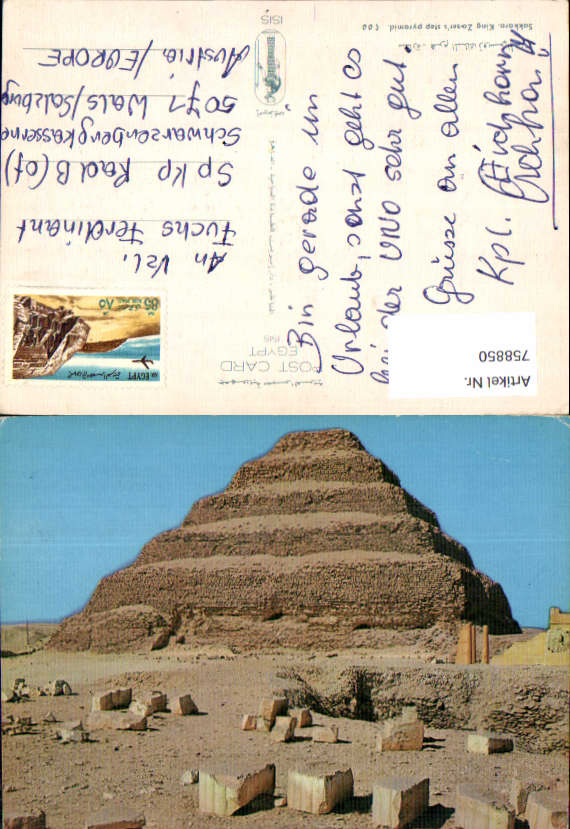 Sakkara. King Zoser's step pyramid.
POST CARD
EGYPT
ISIS
ISIS
EGYPT
85
٨٥
Bin gerade in
Urlaub, sonst geht es
bei der UNO sehr gut
Grüsse an allen
Kpl.
An Vzl.
Fuchs Ferdinant
Sp Kp Rad B (of)
Schwarzenbergkasserne
5071 Wals/Salzburg
Austria/EUROPE
Artikel Nr.
758850